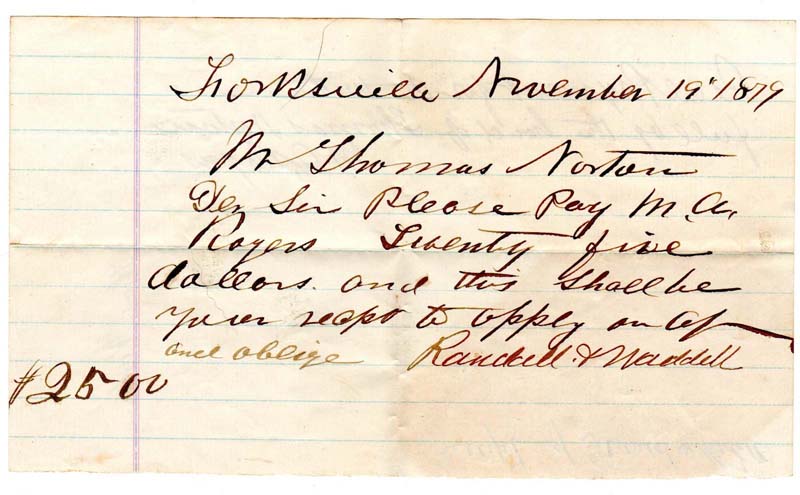 Forksville November 19" 1879
Mr Thomas Norton
Der Sir Please Pay M. A.
Rogers Twenty five
dollars. and this shall be
your recpt to apply on
and oblige Randell & Waddell
$25 00